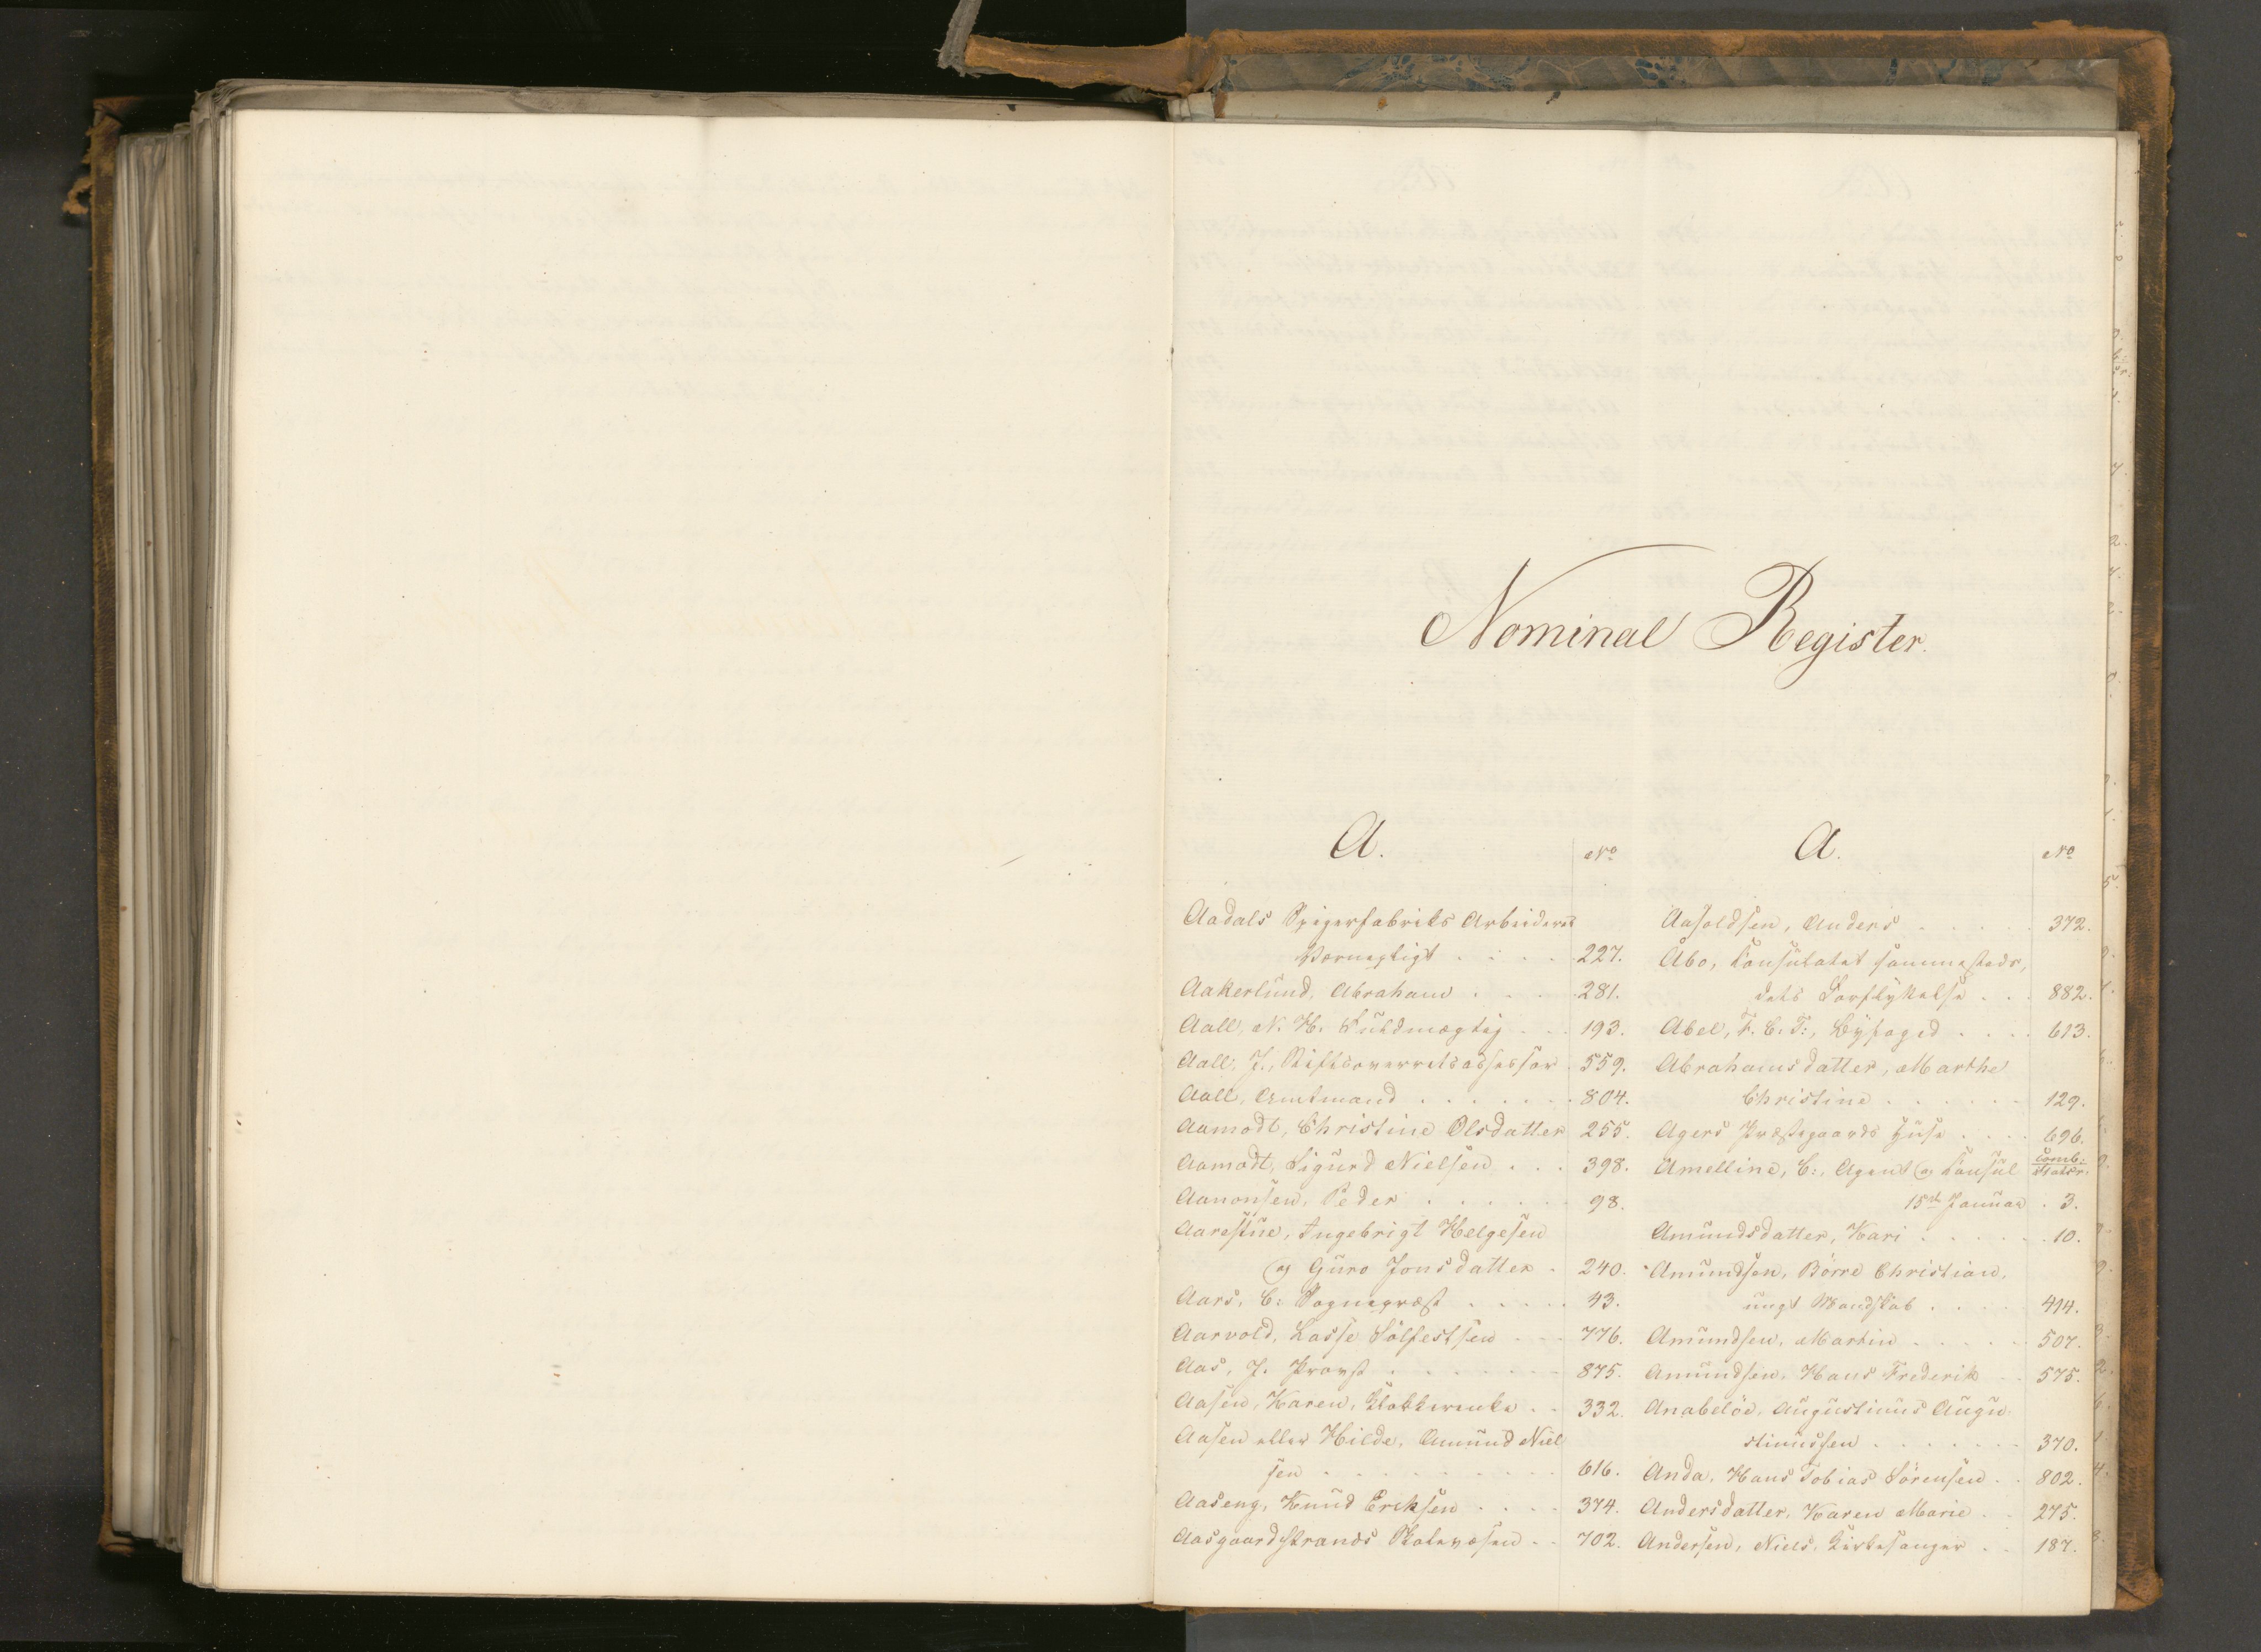 Nominal Register.
A.
No
Aadals Spigerfabriks Arbeideres
Værnepligt . . . . 227.
Aakerlund, Abraham . . . . 281.
Aall, N. H. Fuldmægtig . . . 193.
Aall, J., Stiftsoverretsassessor . 559.
Aall, Amtmand . . . . . . . 804.
Aamodt, Christine Olsdatter 255.
Aamodt, Sigurd Nielsen . . . 398.
Aanonsen, Peder . . . . . . 98.
Aarestue, Ingebrigt Helgesen
og Guro Jonsdatter . 240.
Aars, C: Sognepræst . . . . . 43.
Aarvold, Lasse Sölfestsen . . . 776.
Aas, J. Provst . . . . . . . 875.
Aasen, Karen, Klokkerenke . . 332.
Aasen eller Hilde, Amund Niel
sen . . . . . . . . . . 616.
Aaseng, Knud Eriksen . . . . 374.
Aasgaardstrands Skolevæsen . . 702.
A.
No
Aasoldsen, Anders . . . . . 372.
Åbo, Konsulatet sammesteds,
dets . . . 882.
Abel, F. C. F:, Byfoged . . . . 613.
Abrahamsdatter, Marthe
Christine . . . . . . 129.
Agers Præstegaards Huse . . . . 696.
Amelline, C:, Agent og Konsul Comb: Statsr.
15de Januar . 3.
Amundsdatter, Kari . . . . . . 10.
Amundsen, Börre Christian,
ungt Mandskab . . . . 414.
Amundsen, Martin . . . . . 507.
Amundsen, Hans Frederik . . 575.
Anabelöe, Augustinus Augu
stinussen . . . . . . . 370.
Anda, Hans Tobias Sörensen . . 802.
Andersdatter, Karen Marie . . 275.
Andersen, Niels, Kirkesanger . . 187.